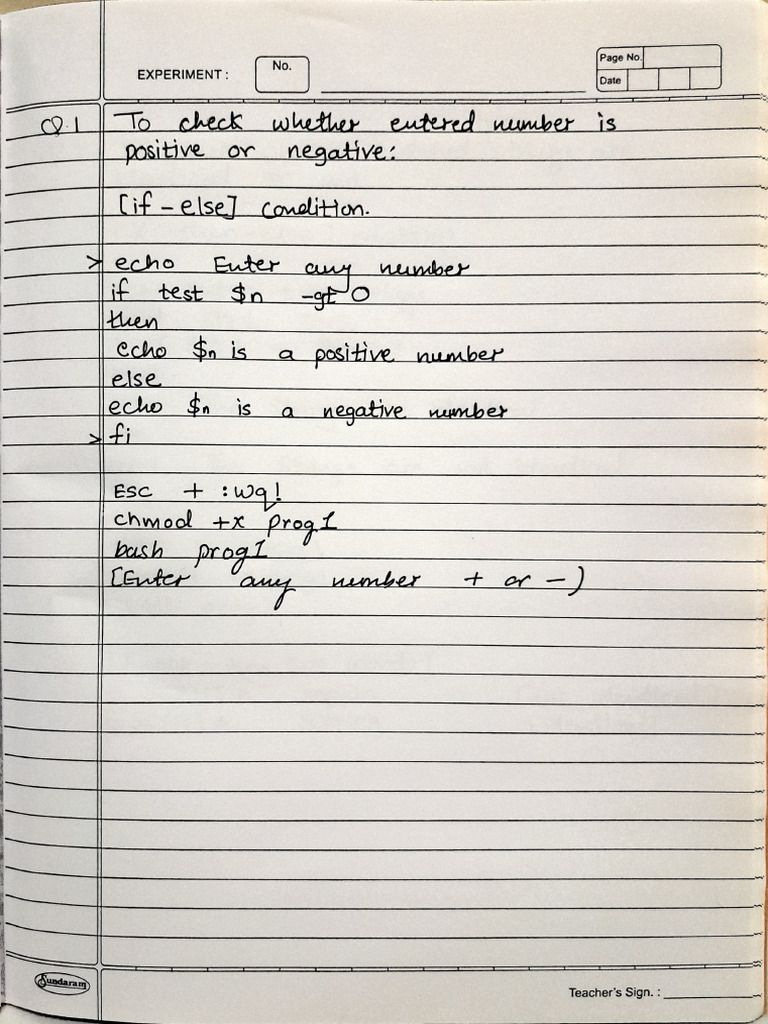 EXPERIMENT : No.
Page No.
Date
Q.1 To check whether entered number is
positive or negative:
[if - else] condition.
> echo Enter any number
if test $n -gt 0
then
echo $n is a positive number
else
echo $n is a negative number
> fi
ESC + :wq!
chmod +x prog1
bash prog1
[Enter any number + or -)
Sundaram
Teacher's Sign. :